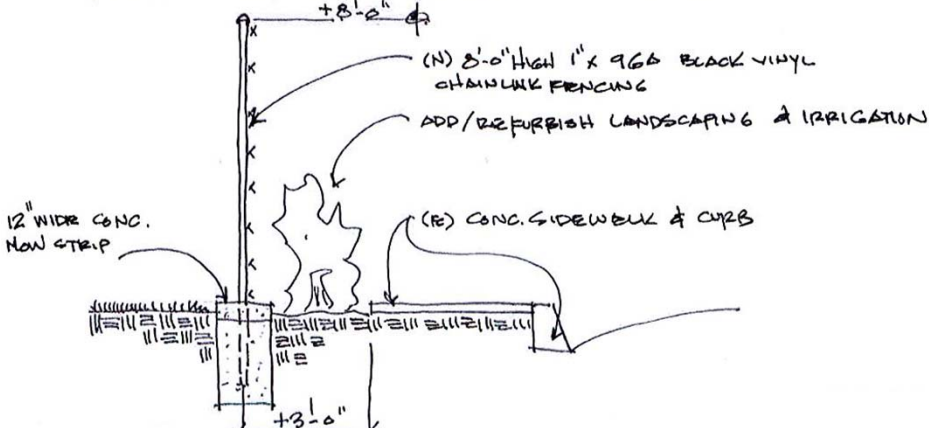 +8'-0"
(N) 8'-0" HIGH 1" x 9GA BLACK VINYL
CHAINLINK FENCING
ADD/REFURBISH LANDSCAPING & IRRIGATION
12" WIDE CONC.
MOW STRIP
(E) CONC. SIDEWALK & CURB
+3'-0"